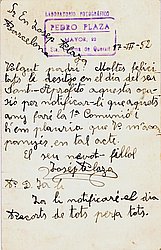 LABORATORIO FOTOGRÁFICO
PEDRO PLAZA
MAYOR, 22
Sta. Coloma de Queralt
Sr. En Josep
Barcelona
17-III-52
Volgut padrí: Moltes felici-
tats te desitjo en el dia del seu
Sant. Aprofito aquesta oca-
sió per notificar-li que aquest
any faré la 1ª Comunió i
li'm plauria que m'acom-
panyés, en tal acte.
El seu nevot-fillol
Josep Plaza
Ja li notificaré el dia
Records de tots per a tots.